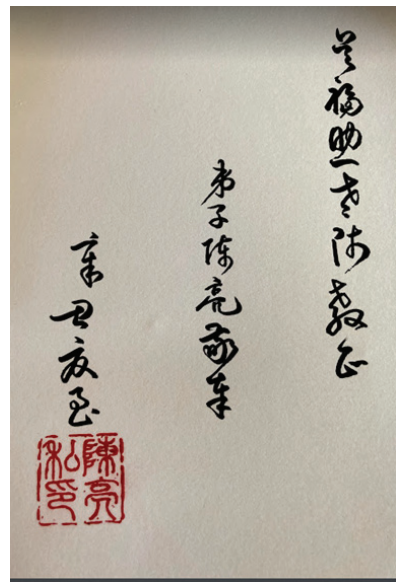 吴福助老师教正
弟子陈亮敬奉
辛丑夏至
陳亮私印